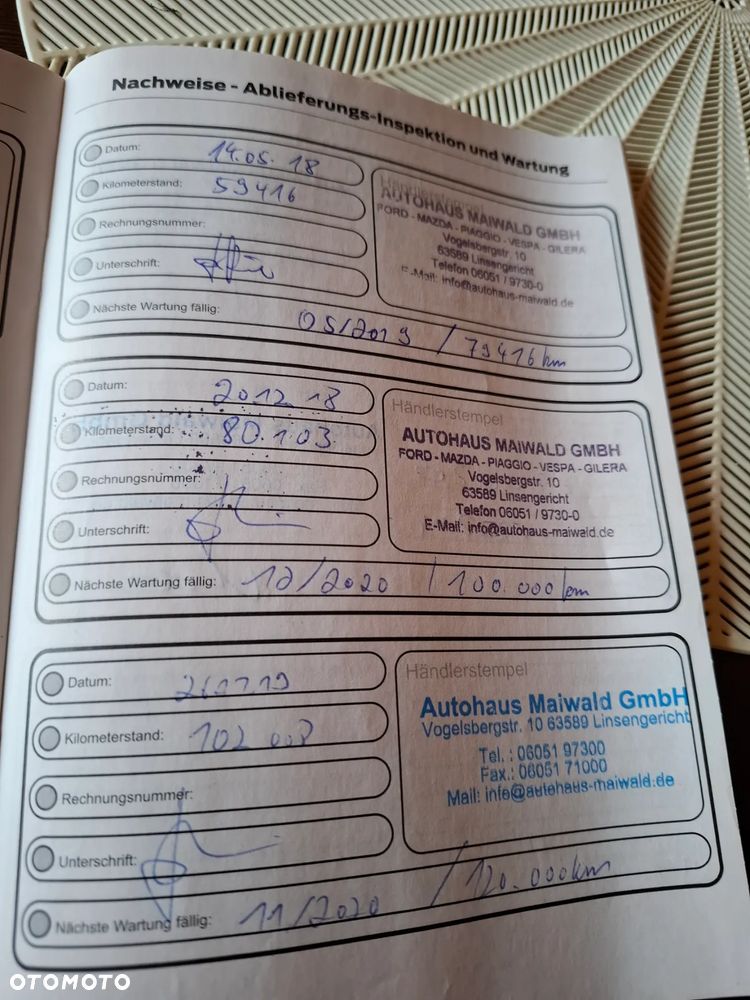 Nachweise - Ablieferungs-Inspektion und Wartung
Datum: 14.05.18
Kilometerstand: 59416
Rechnungsnummer:
Unterschrift:
Nächste Wartung fällig: 05/2019 / 79416 km
Händlerstempel
AUTOHAUS MAIWALD GMBH
FORD - MAZDA - PIAGGIO - VESPA - GILERA
Vogelsbergstr. 10
63589 Linsengericht
Telefon 06051 / 9730-0
E-Mail: info@autohaus-maiwald.de
Datum: 20.12.18
Kilometerstand: 80.103
Rechnungsnummer:
Unterschrift:
Nächste Wartung fällig: 12/2020 / 100.000 km
Händlerstempel
AUTOHAUS MAIWALD GMBH
FORD - MAZDA - PIAGGIO - VESPA - GILERA
Vogelsbergstr. 10
63589 Linsengericht
Telefon 06051 / 9730-0
E-Mail: info@autohaus-maiwald.de
Datum:
Kilometerstand: 102 008
Rechnungsnummer:
Unterschrift:
Nächste Wartung fällig: 11/2020 / 120.000 km
Händlerstempel
Autohaus Maiwald GmbH
Vogelsbergstr. 10 63589 Linsengericht
Tel. : 06051 97300
Fax.: 06051 71000
Mail: info@autohaus-maiwald.de
OTOMOTO